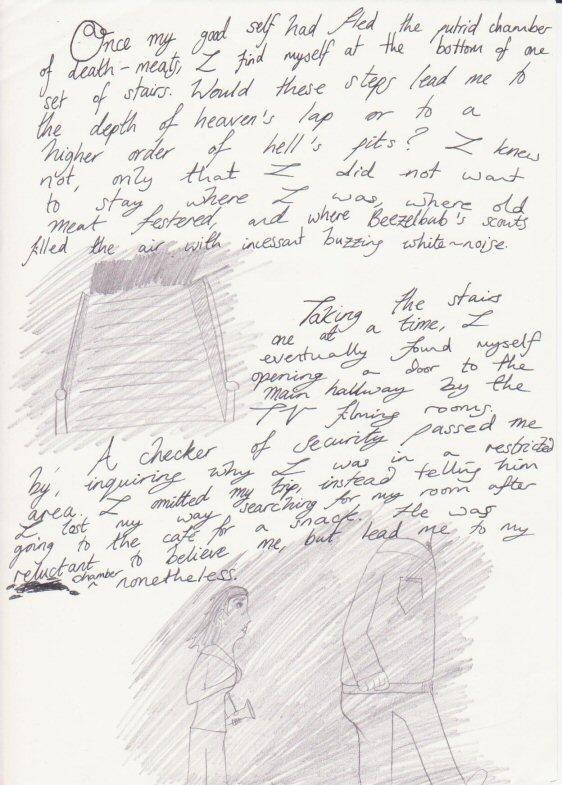 Once my good self had fled the putrid chamber
of death-meats, I find myself at the bottom of one
set of stairs. Would these steps lead me to
the depth of heaven's lap or to a
higher order of hell's pits? I knew
not, only that I did not want
to stay where I was, where old
meat festered, and where Beezelbub's scouts
filled the air with incessant buzzing white-noise.
Taking the stairs
one at a time, I
eventually found myself
opening a door to the
main hallway by the
TV filming rooms.
A checker of security passed me
by, inquiring why I was in a restricted
area. I omitted my trip, instead telling him
I lost my way searching for my room after
going to the café for a snack. He was
reluctant to believe me, but lead me to my
chamber nonetheless.